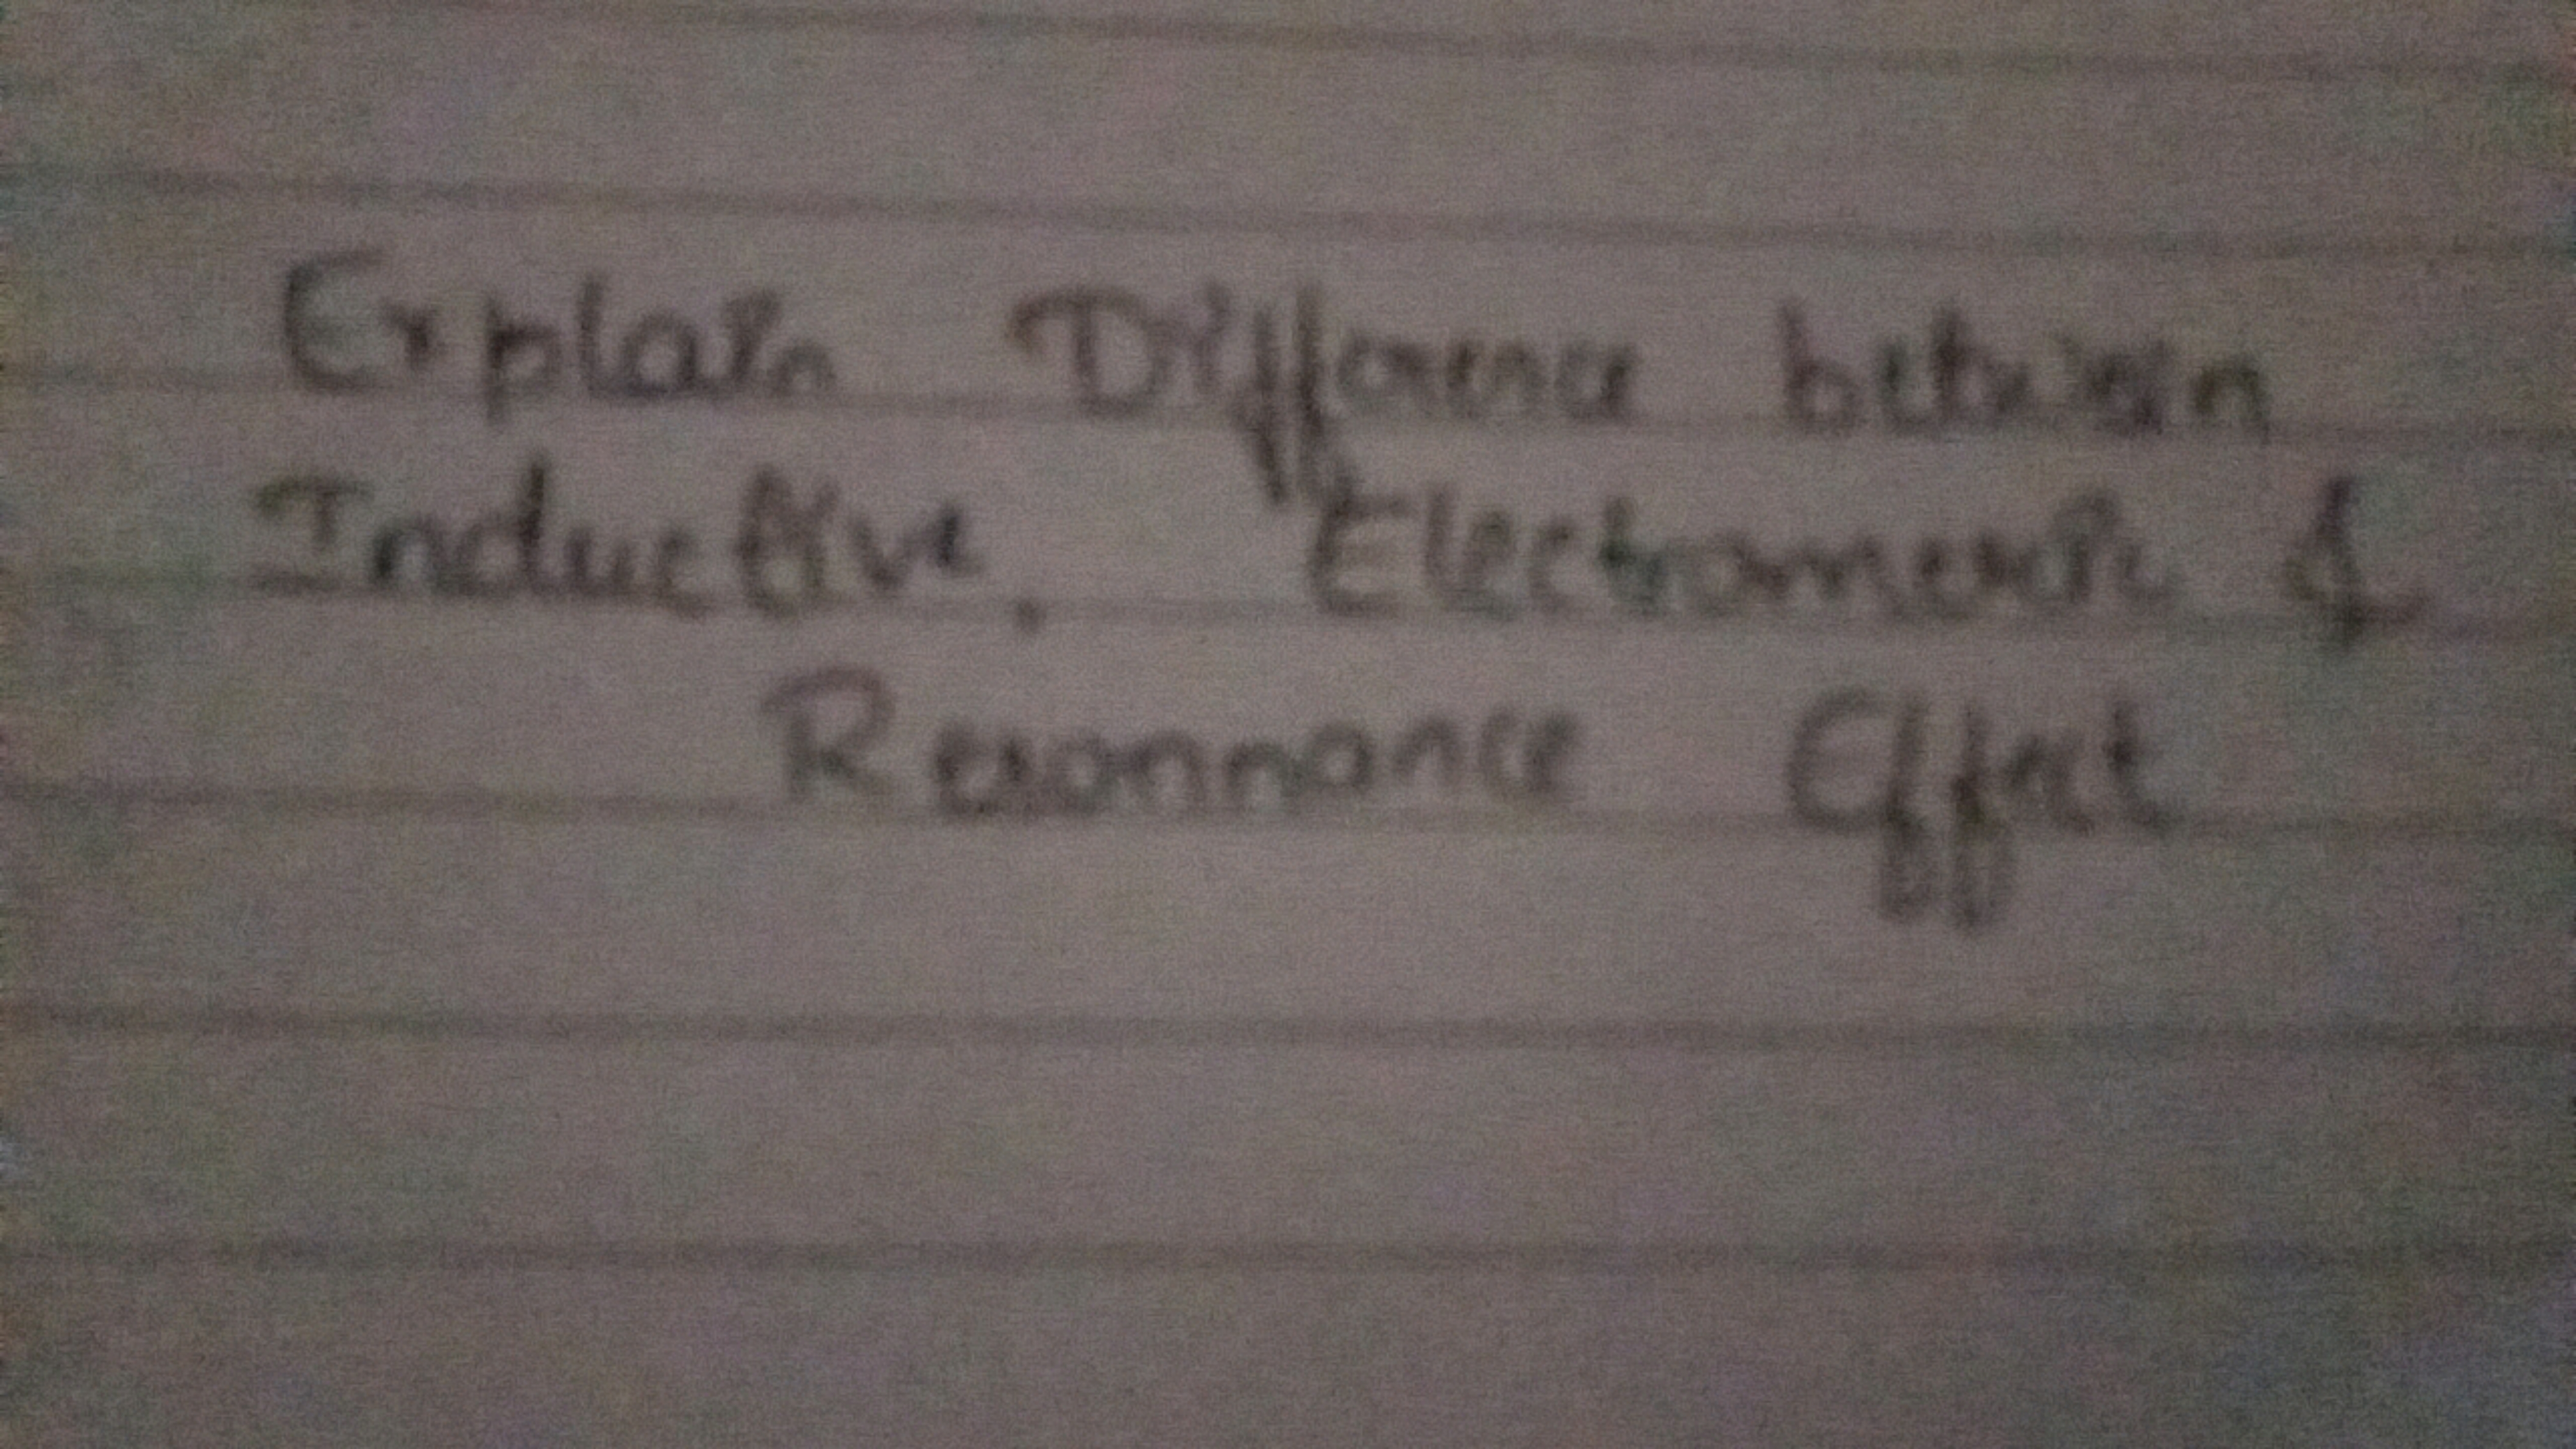 Explain Difference between
Inductive, Electromeric &
Resonnance Effect